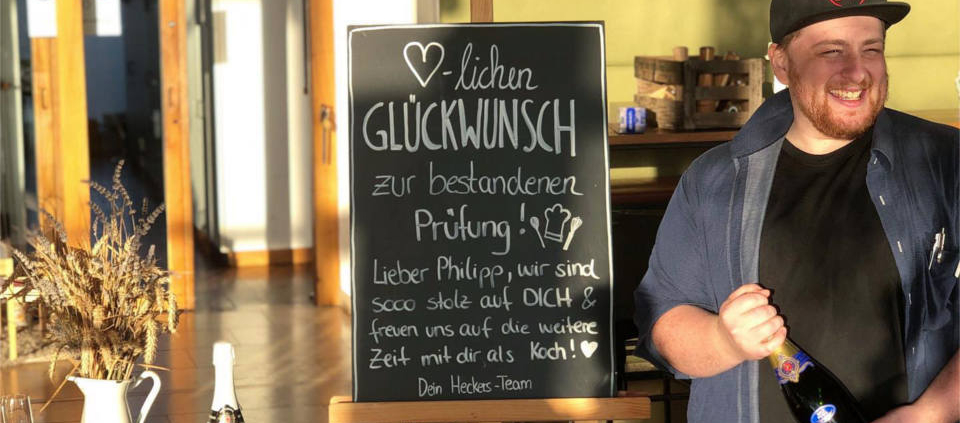 ♡-lichen
GLÜCKWUNSCH
zur bestandenen
Prüfung!
Lieber Philipp, wir sind
sooo stolz auf DICH &
freuen uns auf die weitere
Zeit mit dir, als Koch! ♥
Dein Heckers-Team